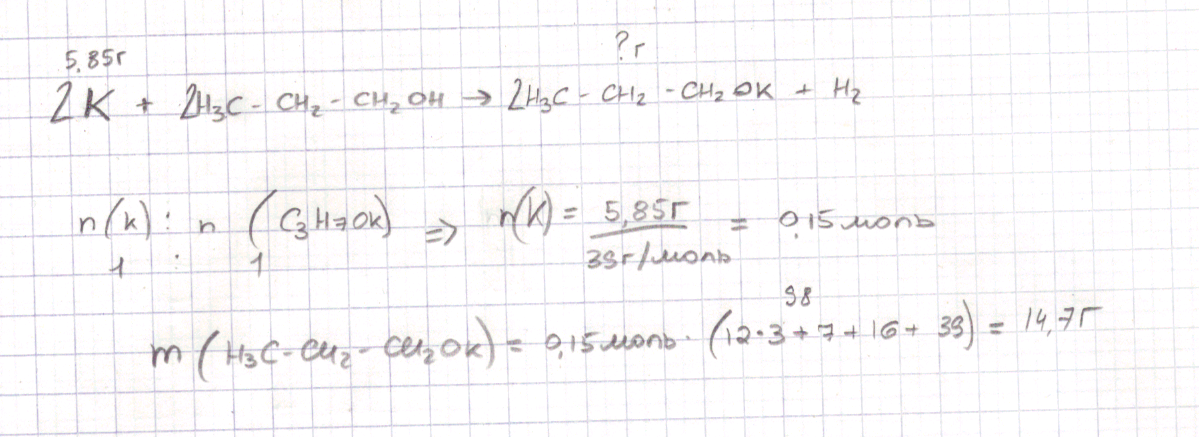 5,85г ?г
2K + 2H₃C - CH₂ - CH₂OH → 2H₃C - CH₂ - CH₂OK + H₂
n(K) : n (C₃H₇OK) => n(K) = 5,85г / 39г/моль = 0,15 моль
1 : 1
98
m (H₃C-CH₂-CH₂OK) = 0,15 моль · (12·3+7+16+39) = 14,7г